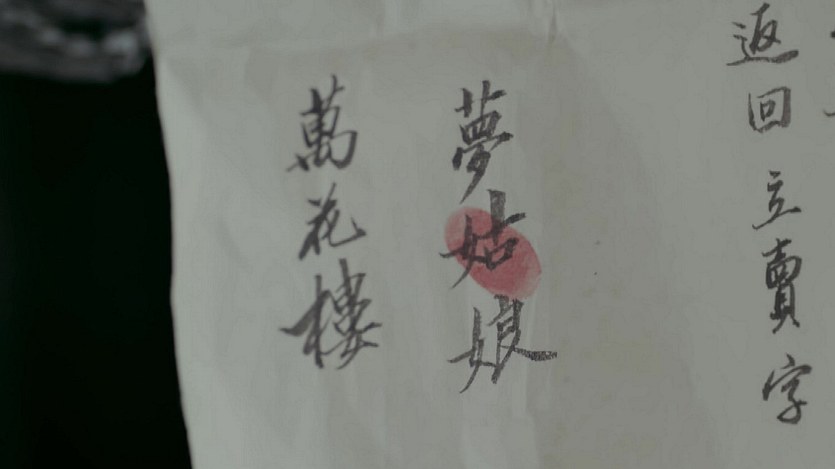 返回立賣字
夢姑娘
萬花樓